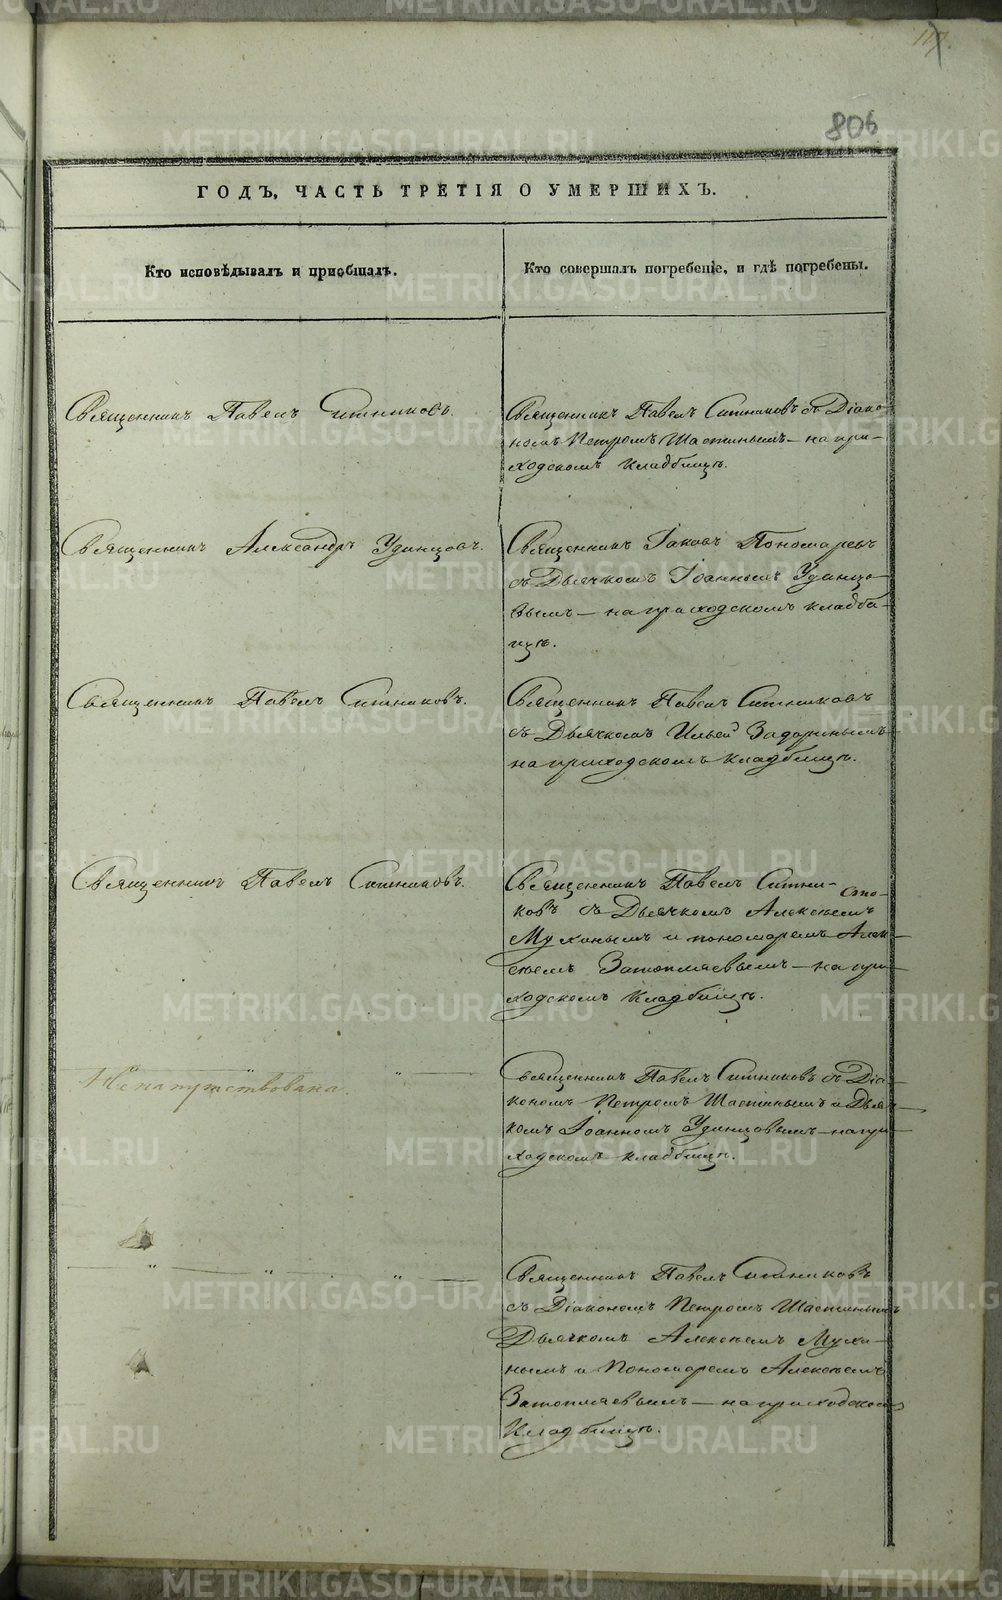 117
806
ГОДЪ, ЧАСТЬ ТРЕТІЯ О УМЕРШИХЪ.
Кто исповѣдывалъ и пріобщалъ.
Кто совершалъ погребеніе, и гдѣ погребены.
Священникъ Павелъ Ситниковъ.
Священникъ Павелъ Ситниковъ съ Діако-
номъ Петромъ Шастинымъ – на при-
ходскомъ кладбищѣ.
Священникъ Александръ Удинцовъ.
Священникъ Іаковъ Пономаревъ
съ Дьячкомъ Іоанномъ Удинцо-
вымъ – на приходскомъ кладби-
щѣ.
Священникъ Павелъ Ситниковъ.
Священникъ Павелъ Ситниковъ
съ Дьячкомъ Ильей Задоринымъ
на приходскомъ кладбищѣ.
Священникъ Павелъ Ситниковъ.
Священникъ Павелъ Ситни-
ковъ съ Дьячкомъ Алексѣемъ
Мухинымъ и пономаремъ Алек-
сѣемъ Затопляевымъ – на при-
ходскомъ кладбищѣ.
Не напутствована.
Священникъ Павелъ Ситниковъ съ Діа-
кономъ Петромъ Шастинымъ и Дьяч-
комъ Іоанномъ Удинцовымъ – на при-
ходскомъ кладбищѣ.
Священникъ Павелъ Ситниковъ
съ Діакономъ Петромъ Шастинымъ
Дьячкомъ Алексѣемъ Мухи-
нымъ и Пономаремъ Алексѣемъ
Затопляевымъ – на приходскомъ
кладбищѣ.
METRIKI.GASO-URAL.RU